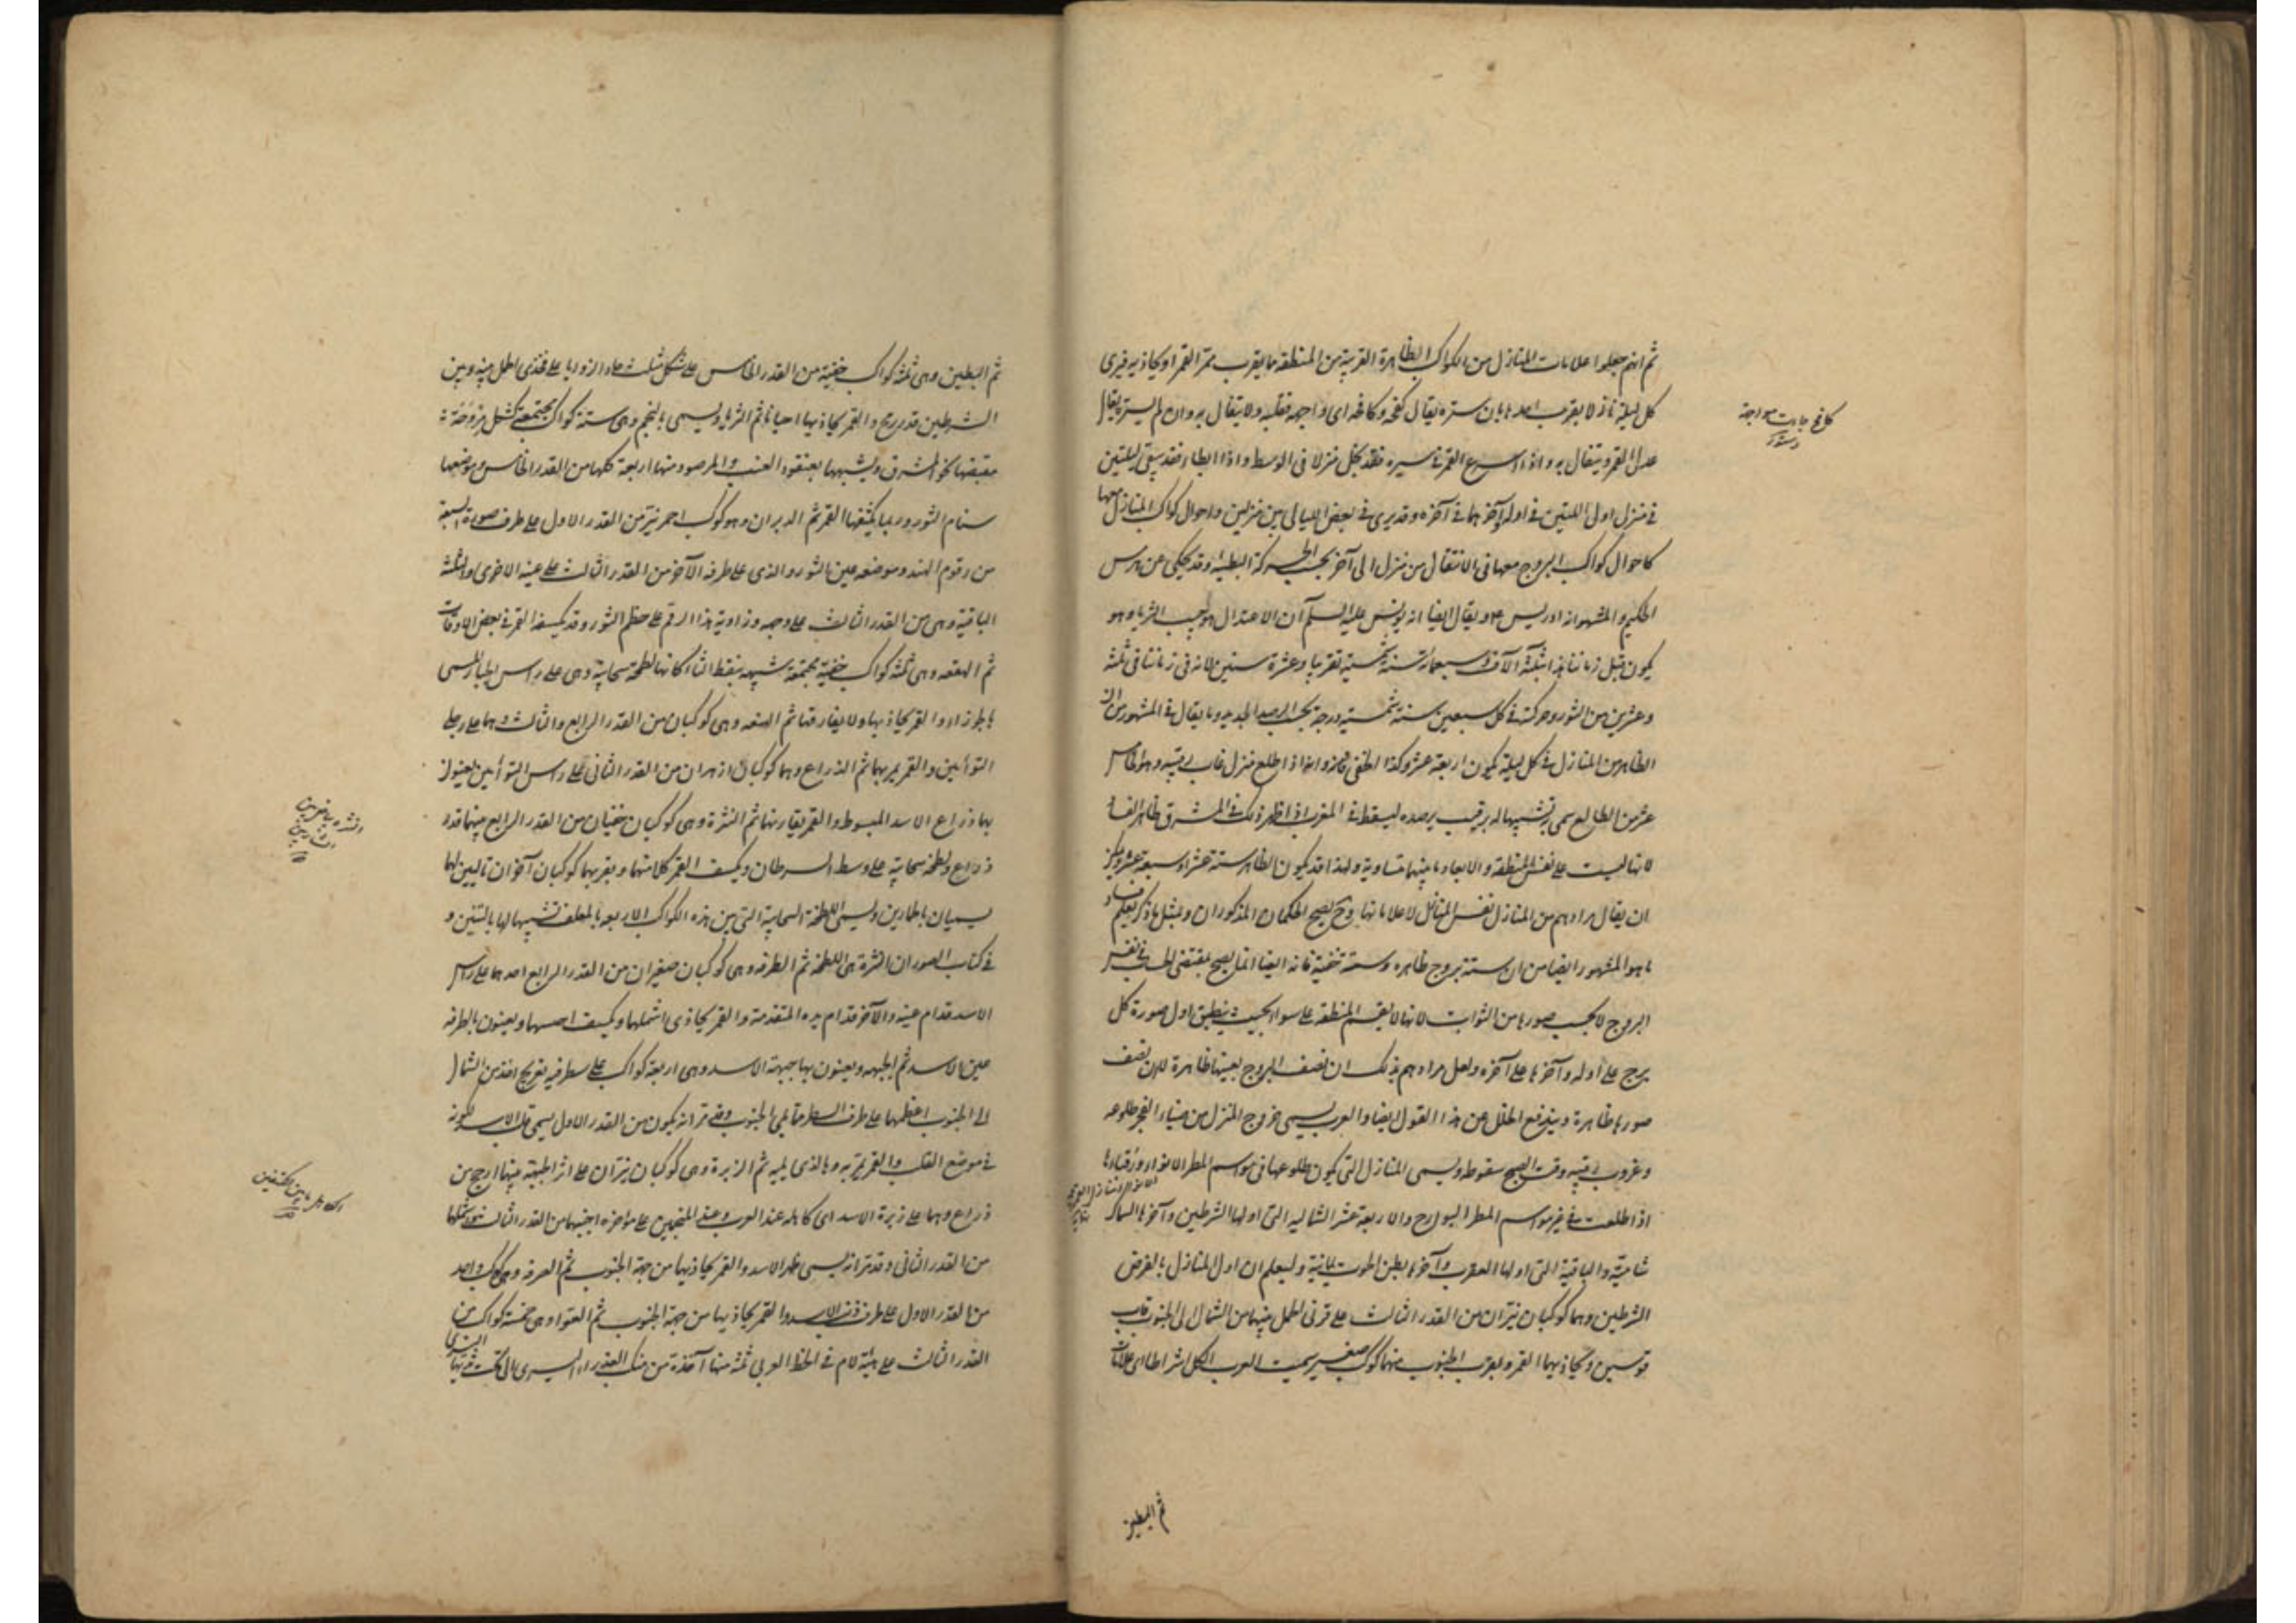 ثم انهم جعلوا علامات المنازل من الكواكب الظاهرة القريبة من المنطقة ما يقرب ممر القمر او يحاذيه فيرى
كل ليلة نازلا بقرب احدها بان ستره يقال كفحه وكافحه اى واجهه فغلبه ولا يتفال به وان لم يستره يقال
عدل القمر ويتفال به واذا اسرع القمر فى سيره فقد يخل منزلا فى الوسط واذا ابطاء فقد يبقى ليلتين
فى منزل اول الليلتين فى اوله وآخرهما فى آخره وقد يرى فى بعض الليالى بين منزلين واحوال كواكب المنازل معها
كاحوال كواكب البروج معها فى الانتقال من منزل الى آخر بحسب الحركة البطيئة وقد يحكى عن هرمس
الحكيم والمشهور انه ادريس ع م ويقال ايضا انه يونس عليه السلم ان الاعتدال هو جيب الثريا وهو
يكون قبل زماننا هذا بثلثة آلاف وسبعمائة سنة شمسية تقريبا وعشرة سنين لانه فى زماننا فى ثلثة
وعشرين من الثور وحركته فى كل سبعين سنة شمسية درجة بحسب الرصد الجديد وما يقال فى المشهور من ان
الظاهر من المنازل فى كل ليلة يكون اربعة عشر وكذا الخفى وانه اذا طلع منزل غاب رقيبه وهو الخامس
عشر من الطالع سمى به تشبيها له برقيب يرصده ليسقط فى المغرب اذا ظهر ذلك فى المشرق ظاهر الفساد
لانها ليست على نفس المنطقة ولا ابعاد ما بينهما متساوية ولهذا قد يكون الظاهر ستة عشر او سبعة عشر ويمكن
ان يقال مرادهم من المنازل نفس المنازل لا علاماتها وح يصح الحكمان المذكوران وبمثل ما ذكر يعلم فساد
ما هو المشهور ايضا من ان ستة بروج ظاهره وستة خفية فانه ايضا انما يصح بمقتضى الحساب فى نفس
البروج لا بحسب صورها من الثوابت لانها لا يقسم المنطقة على سواء بحيث ينطبق اول صورة كل
برج على اوله وآخرها على آخره ولعل مرادهم بذلك ان نصف البروج بعينها ظاهرة لا ان نصف
صورها ظاهرة ويندفع الخلل عن هذا القول ايضا والعرب يسمى خروج المنزل من ضياء الفجر طلوعه
وغروب رقيبه وقت الصبح سقوطه ويسمى المنازل التى يكون طلوعها فى مواسم المطر الانواء ورقباءها
اذا طلعت فى غير مواسم المطر البوارح والاربعة عشر الشاليه التى اولها الشرطين وآخرها السماك
شامية والباقية التى اولها العقرب وآخرها بطن الحوت يمانية وليعلم ان اول المنازل بالفرض
الشرطين وهما كوكبان نيران من القدر الثالث على قرنى الحمل بينهما من الشمال الى الجنوب قاب
قوسين ويحاذيهما القمر وبقرب الجنوب منهما كوكب صغير سميت العرب الكل اشراطا اى علامات
ثم البطين
كافح جابهت مواجهة
دستور
ثم البطين وهى ثلثة كواكب خفية من القدر الخامس على شكل مثلث حاد الزوايا على فخذى الحمل بينه وبين
الشرطين قدر رمح والقمر يحاذيها احيانا ثم الثريا ويسمى بالنجم وهى ستة كواكب مجتمعة كشكل مروحة
مقبضها نحو المشرق ويشبهها بعنقود العنب والمرصود منها اربعة كلها من القدر الخامس وموضعها
سنام الثور وربما يكسفها القمر ثم الدبران وهو كوكب احمر نير من القدر الاول على طرف صورة السبعة
من رقوم الهند وموضعه عين الثور والذى على طرفه الآخر من القدر الثالث على عينه الاخرى والثلثة
الباقية وهى من القدر الثالث على وجهه وزاوية هذا الرقم على خطم الثور وقد يكسفه القمر فى بعض الاوقات
ثم الهقعه وهى ثلثة كواكب خفية مجتمعة شبيهه بنقط الثاء كانها لطخة سحابية وهى على راس الجبار المسمى
بالجوزاء والقمر يحاذيها ولا يقارنها ثم الهنعه وهى كوكبان من القدر الرابع والثالث وهما على رجلى
التوأمين والقمر يمر بهما ثم الذراع وهما كوكبان ازهران من القدر الثانى على راس التوأمين يعنون
بها ذراع الاسد المبسوطه والقمر يقارنها ثم النثرة وهى كوكبان خفيان من القدر الرابع بينهما قدر
ذراع ولطخة سحابية على وسط السرطان ويكسف القمر كلا منهما وبقربهما كوكبان آخران تاليين لها
يسميان بالحمارين ويسمى اللطخة السحابية التى بين هذه الكواكب الاربعة بالمعلف تشبيها لها بالتبن و
فى كتاب الصور ان النثرة هى اللطخة ثم الطرفه وهى كوكبان صغيران من القدر الرابع احدهما على راس
الاسد قدام عينه والآخر قدام يده المتقدمة والقمر يحاذى اشملهما ويكسف اجنبهما ويعنون بالطرفه
عين الاسد ثم الجبهه ويعنون بها جبهة الاسد وهى اربعة كواكب على سطر فيه تعويج آخذ من الشمال
الى الجنوب اعظمها على طرف السطر مما يلى الجنوب وقد مر انه يكون من القدر الاول يسمى قلب الاسد لكونه
فى موضع القلب والقمر يمر به وبالذى يليه ثم الزبرة وهى كوكبان نيران على اثر الجبهة بينهما ارجح من
ذراع وهما على زبرة الاسد اى كاهله عند العرب وعند المنجمين على مؤخره اجنبهما من القدر الثالث واشملهما
من القدر الثانى وقد مر انه يسمى ظهر الاسد والقمر يحاذيهما من جهة الجنوب ثم الصرفه وهى كوكب واحد
من القدر الاول على طرف ذنب الاسد والقمر يحاذيها من جهة الجنوب ثم العواء وهى خمسة كواكب من
القدر الثالث على هيئة لام فى الخط العربى ثلثة منها آخذة من منكب العذراء الايسر الى تحت ثديها
الكاهل ما بين الكتفين